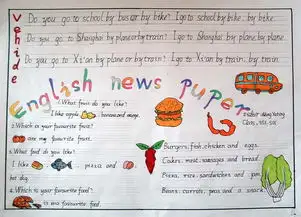 Vehide
Do you go to school by bus or by bike? I go to school by bike, by bike.
Do you go to Shanghai by plane or by train? I go to Shanghai by plane, by plane.
Do you go to Xi'an by plane or by train? I go to Xi'an by train, by train.
English news puper
1. What fruit do you like?
I like apple banana and mango.
2. Which is your favourite fruit?
are my favourite fruit.
3. What food do you like?
I like , pizza and
hot dog
4. Which is your favourite food?
is my favourite food.
Burgers, fish, chicken and eggs.
Cakes, meat, sausages and bread.
Pizza, rice, sandwiches and
Beans, carrots, peas and a snack.